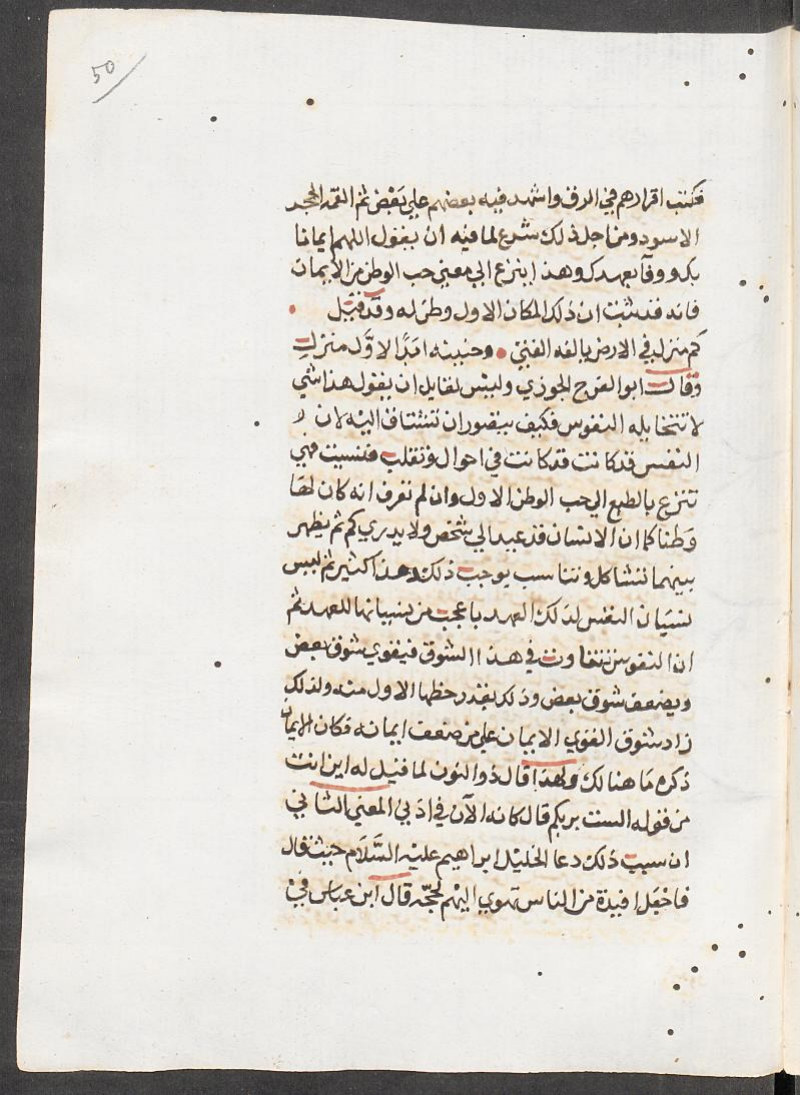 50
فكتب اقرارهم في الرق واشهد فيه بعضهم علي بعض ثم القمه الحجر
الاسود ومن اجل ذلك شرع لما فيه ان يقول اللهم ايمانا
بك ووفآ بعهدك وهذا ينزع الي معني حب الوطن من الايمان
فانه قد ثبت ان ذلك المكان الاول وطن له وقد قيل
كم منزل في الارض يالفه الفتي • وحنينه ابدًا لاوَّل منزل
وقال ابو الفرج الجوزي وليس لقايل ان يقول هذا شي
لا تتخايله النفوس فكيف يتصور ان تشتاق اليه لان
النفس قد كانت قد كانت في احوال وتقلب فنسيت فهي
تنزع بالطبع الي حب الوطن الاول وان لم تعرف انه كان لها
وطنا كما ان الانسان قد يميل الي شخص ولا يدري كم ثم يظهر
بينهما تشاكل وتناسب يوجب ذلك وهذا كثير ثم ليس
نسيان النفس لذلك العهد باعجب من نسيانها للعهد ثم
ان النفوس تتفاوت في هذا الشوق فيقوي شوق بعض
ويضعف شوق بعض وذلك بقدر حظها الاول منه ولذلك
زاد شوق القوي الايمان علي من ضعف ايمانه فكان الايمان
ذكره ما هنالك ولهذا قال ذو النون لما قيل له اين انت
من قوله الست بربكم قال كانه الآن في اذني المعني الثاني
ان سبب ذلك دعا الخليل ابراهيم عليه السَّلام حيث قال
فاجعل افيدة من الناس تهوي اليهم لحجّه قال ابن عباس في